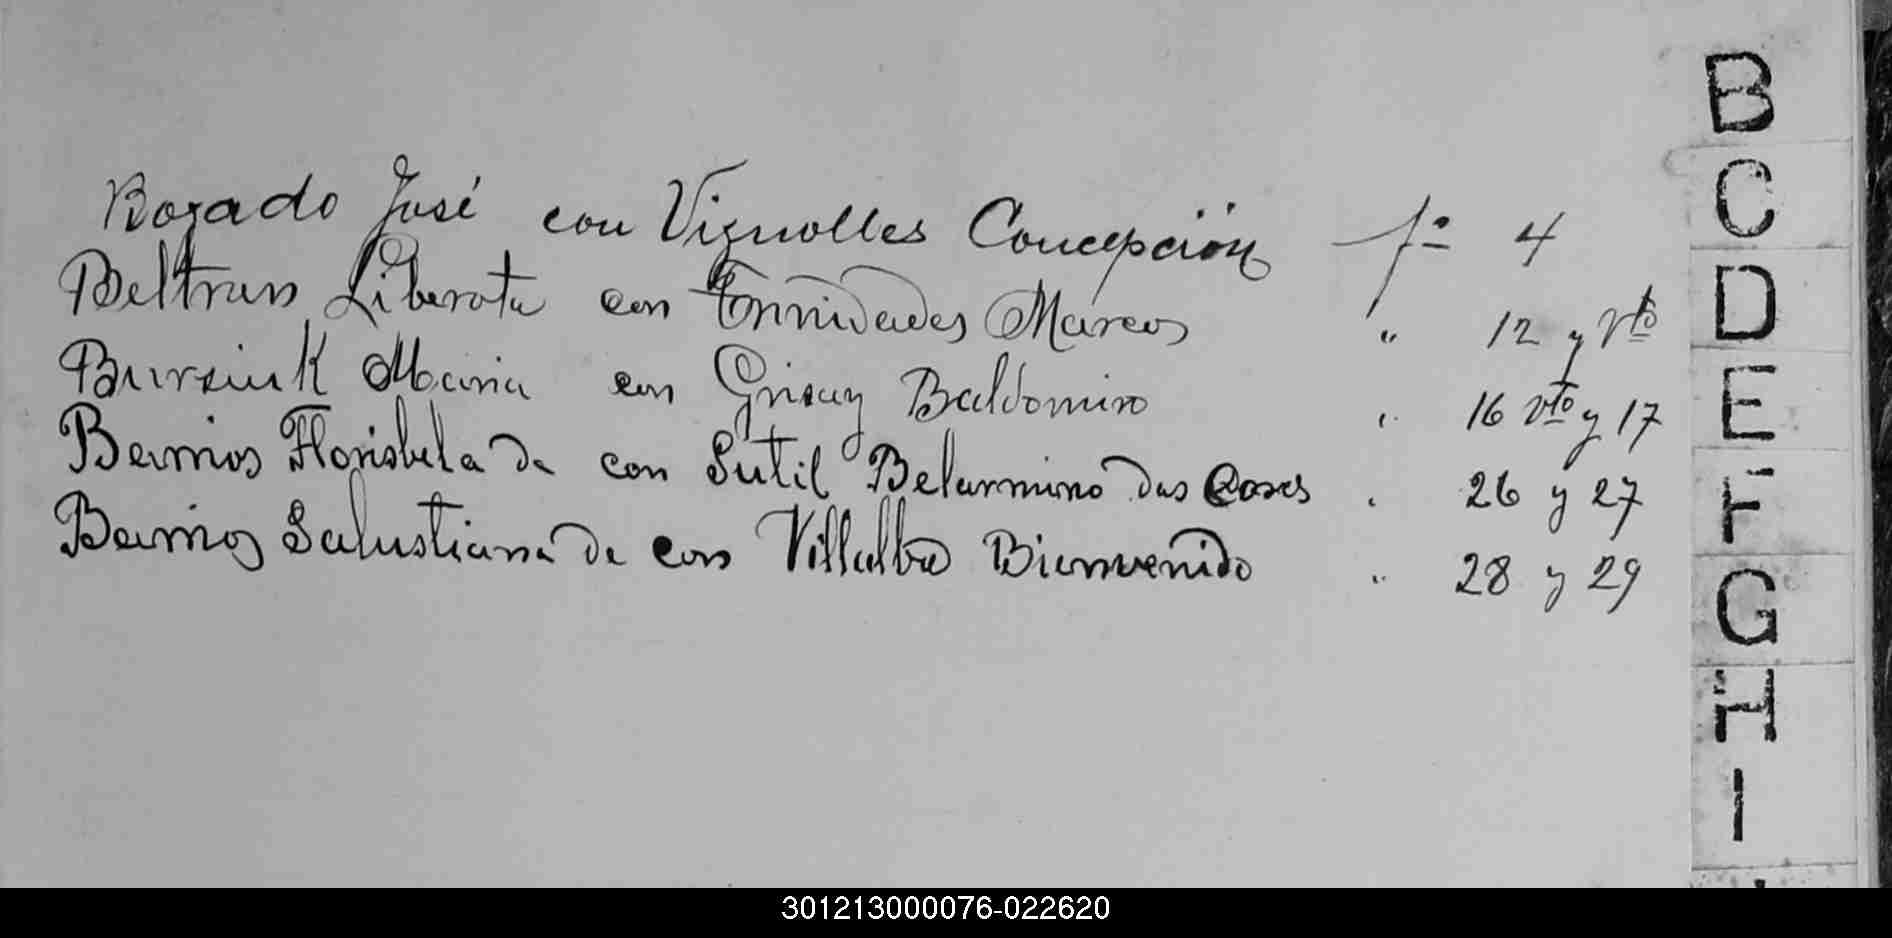 Bogado José con Vignolles Concepción fº 4
Beltran Liberata con Trinidades Marcos " 12 y vto
Maria con Baldomiro " 16 vto y 17
Berrios Florisbela da con Sutil Belarmino das " 26 y 27
Berrios Salustiana da con Villalba Bienvenido " 28 y 29
B
C
D
E
F
G
H
I
301213000076-022620